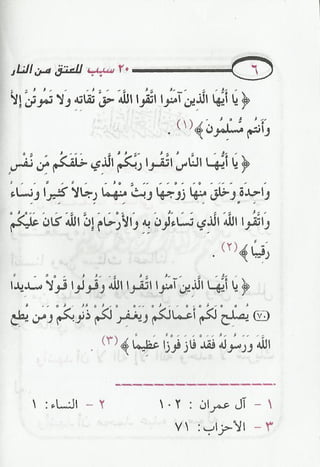 ٦ ٢٠ سبب للعتق من النار
﴿ يا أيها الذين آمنوا اتقوا الله حق تقاته ولا تموتن إلا
وأنتم مسلمون ﴾ (١) .
﴿ يا أيها الناس اتقوا ربكم الذي خلقكم من نفس
واحدة وخلق منها زوجها وبث منهما رجالاً كثيرًا ونساء
واتقوا الله الذي تساءلون به والأرحام إن الله كان عليكم
رقيبا ﴾ (٢) .
﴿ يا أيها الذين آمنوا اتقوا الله وقولوا قولاً سديدا
(٧٠) يصلح لكم أعمالكم ويغفر لكم ذنوبكم ومن يطع
الله ورسوله فقد فاز فوزا عظيما ﴾ (٣) .
١ - آل عمران : ١٠٢ ٢ - النساء : ١
٣ - الأحزاب : ٧١